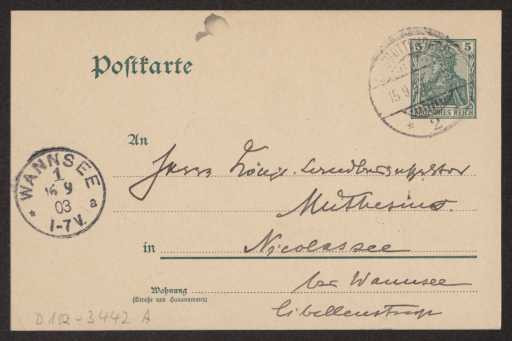 Postkarte
5 5
DEUTSCHES REICH
15.9.
* 2
An
Herrn König. Landbauinspektor
Muthesius.
in Nicolassee
bei Wannsee
Wohnung
(Straße und Hausnummer)
Libellenstrasse
* WANNSEE a
1
16 9
03
1-7V.
D 102-3442 A